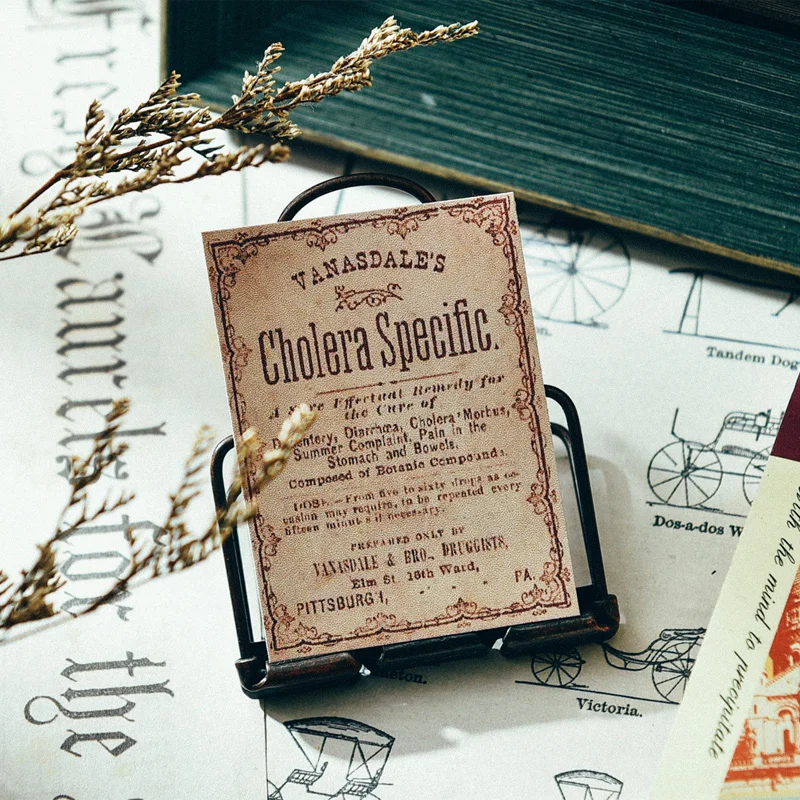 VANASDALE'S
Cholera Specific.
A Sure Effectual Remedy for
the Cure of
Dysentery, Diarrhœa, Cholera Morbus,
Summer Complaint, Pain in the
Stomach and Bowels.
Composed of Botanic Compounds.
DOSE.—From five to sixty drops as oc-
casion may require, to be repeated every
fifteen minutes if necessary.
PREPARED ONLY BY
VANASDALE & BRO., DRUGGISTS,
Elm St. 16th Ward,
PITTSBURGH, PA.
Tandem Dog
Dos-a-dos W
Victoria.
with the mind to precipitate
Laurels for the